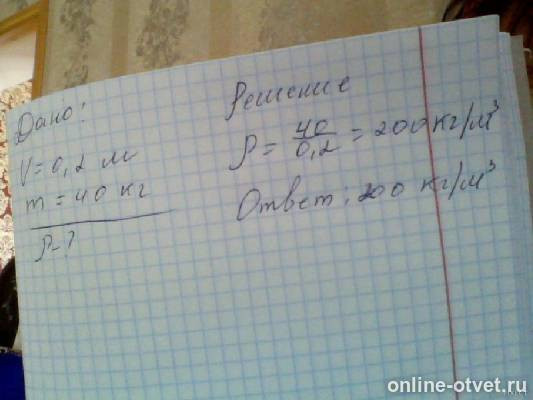 Дано:
V = 0,2 м
m = 40 кг
ρ - ?
Решение
ρ = 40/0,2 = 200 кг/м³
Ответ: 200 кг/м³
online-otvet.ru